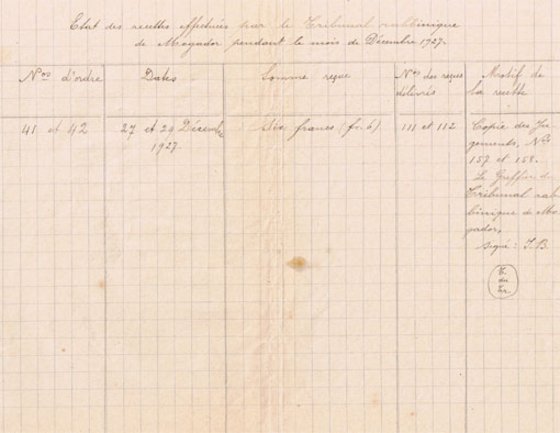 Etat des recettes effectuées par le Tribunal rabbinique
de Mogador pendant le mois de Décembre 1927.
Nos d'ordre
Dates
Somme reçue
Nos des reçus
délivrés
Motif de
la recette
41 et 42
27 et 29 Décembre
1927
Six francs (fr. 6)
111 et 112
Copie des Ju-
gements, Nos
157 et 158.
Le Greffier du
Tribunal rab-
binique de Mo-
gador,
signé : J.B.